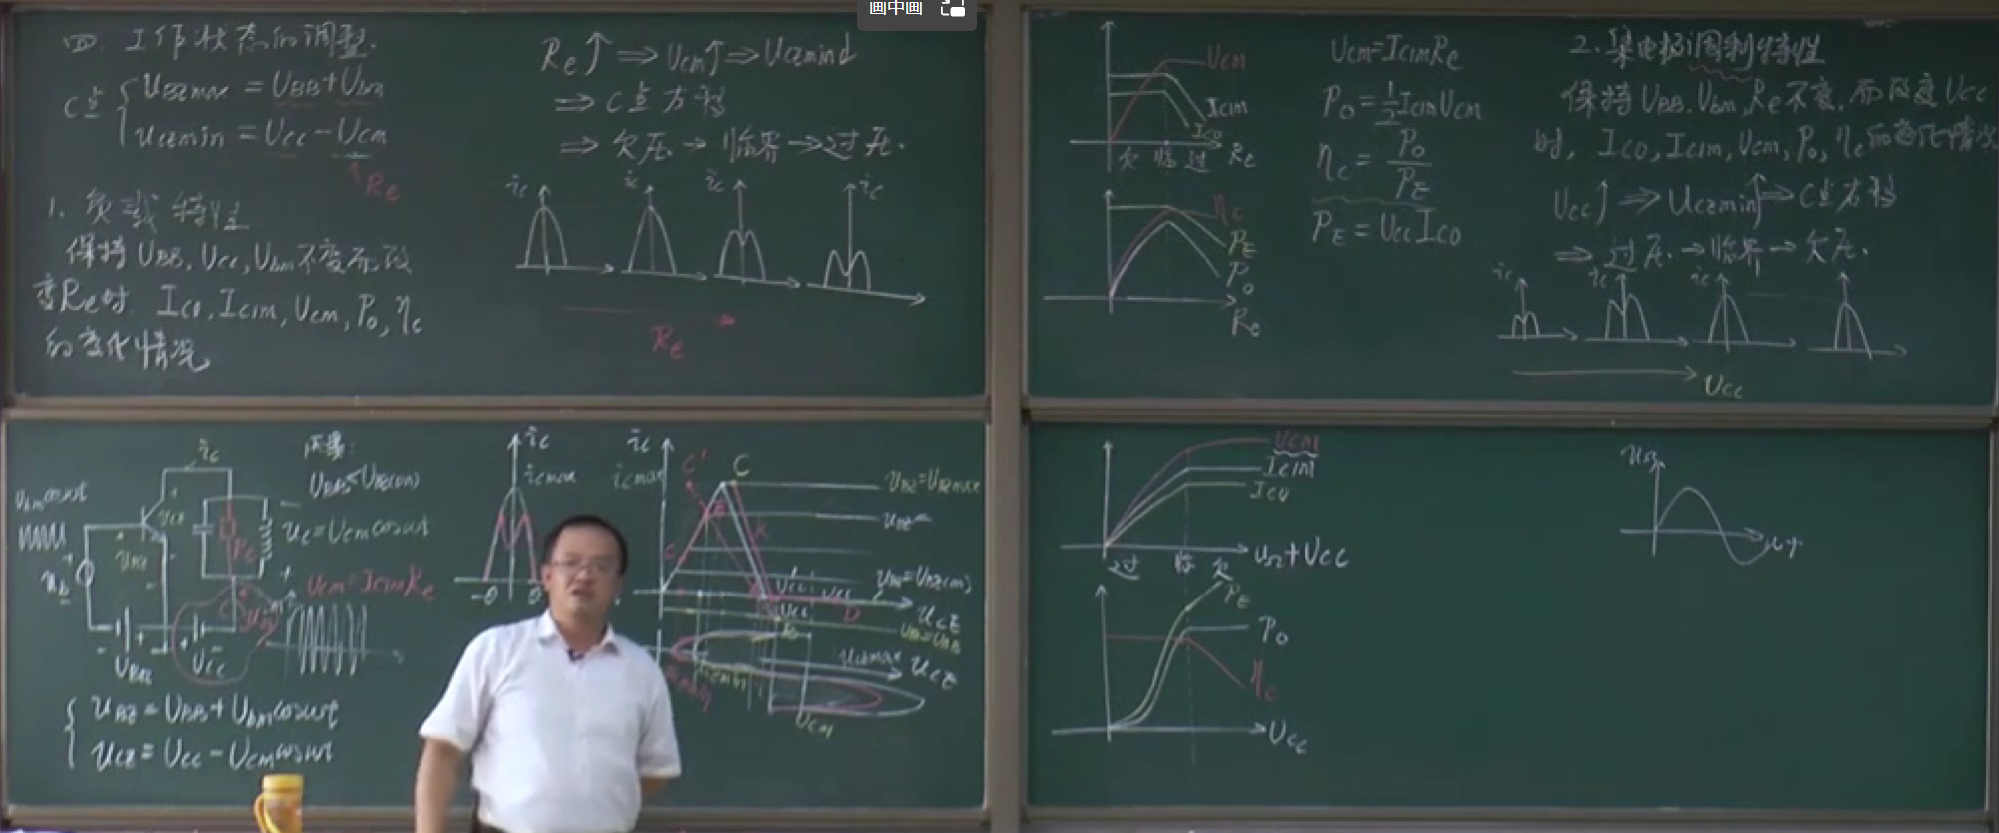 画中画
四. 工作状态的调整.
C点 { uBEmax = UBB+Ubm
uCEmin = UCC-Ucm
Re
1. 负载特性
保持UBB, UCC, Ubm不变而改
变Re时. IC0, IC1M, Ucm, Po, ηc
的变化情况
Re↑ ⇒ Ucm↑ ⇒ UCEmin↓
⇒ C点左移
⇒ 欠压 → 临界 → 过压.
ic
ic
ic
ic
Re
Ucm
IC1M
IC0
欠 临 过 Re
ηc
PE
Po
Re
Ucm=IC1MRe
Po=½IC1MUcm
ηc = Po/PE
PE = UCCIC0
2. 集电极调制特性
保持UBB, Ubm, Re不变, 而改变UCC
时, IC0, IC1M, Ucm, Po, ηc的变化情况
UCC↑ ⇒ UCEmin↑ ⇒ C点右移
⇒ 过压 → 临界 → 欠压.
ic
ic
ic
UCC
ic
Ubmcosωt
uBE
ub
UBB
UCC
Re
丙类:
UBB<UBE(on)
uc=Ucmcosωt
Ucm=IC1MRe
{ uBE = UBB+Ubmcosωt
uCE = UCC-Ucmcosωt
ic
icmax
-θ θ
ic
icmax
C'
C
uBE=uBEmax
uBE=
uBE=UBE(on)
UCC
D
uCE
uCEmax
uCE
Ucm
Ucm
IC1M
IC0
过 临 欠
uΩ+UCC
PE
Po
ηc
UCC
uΩ